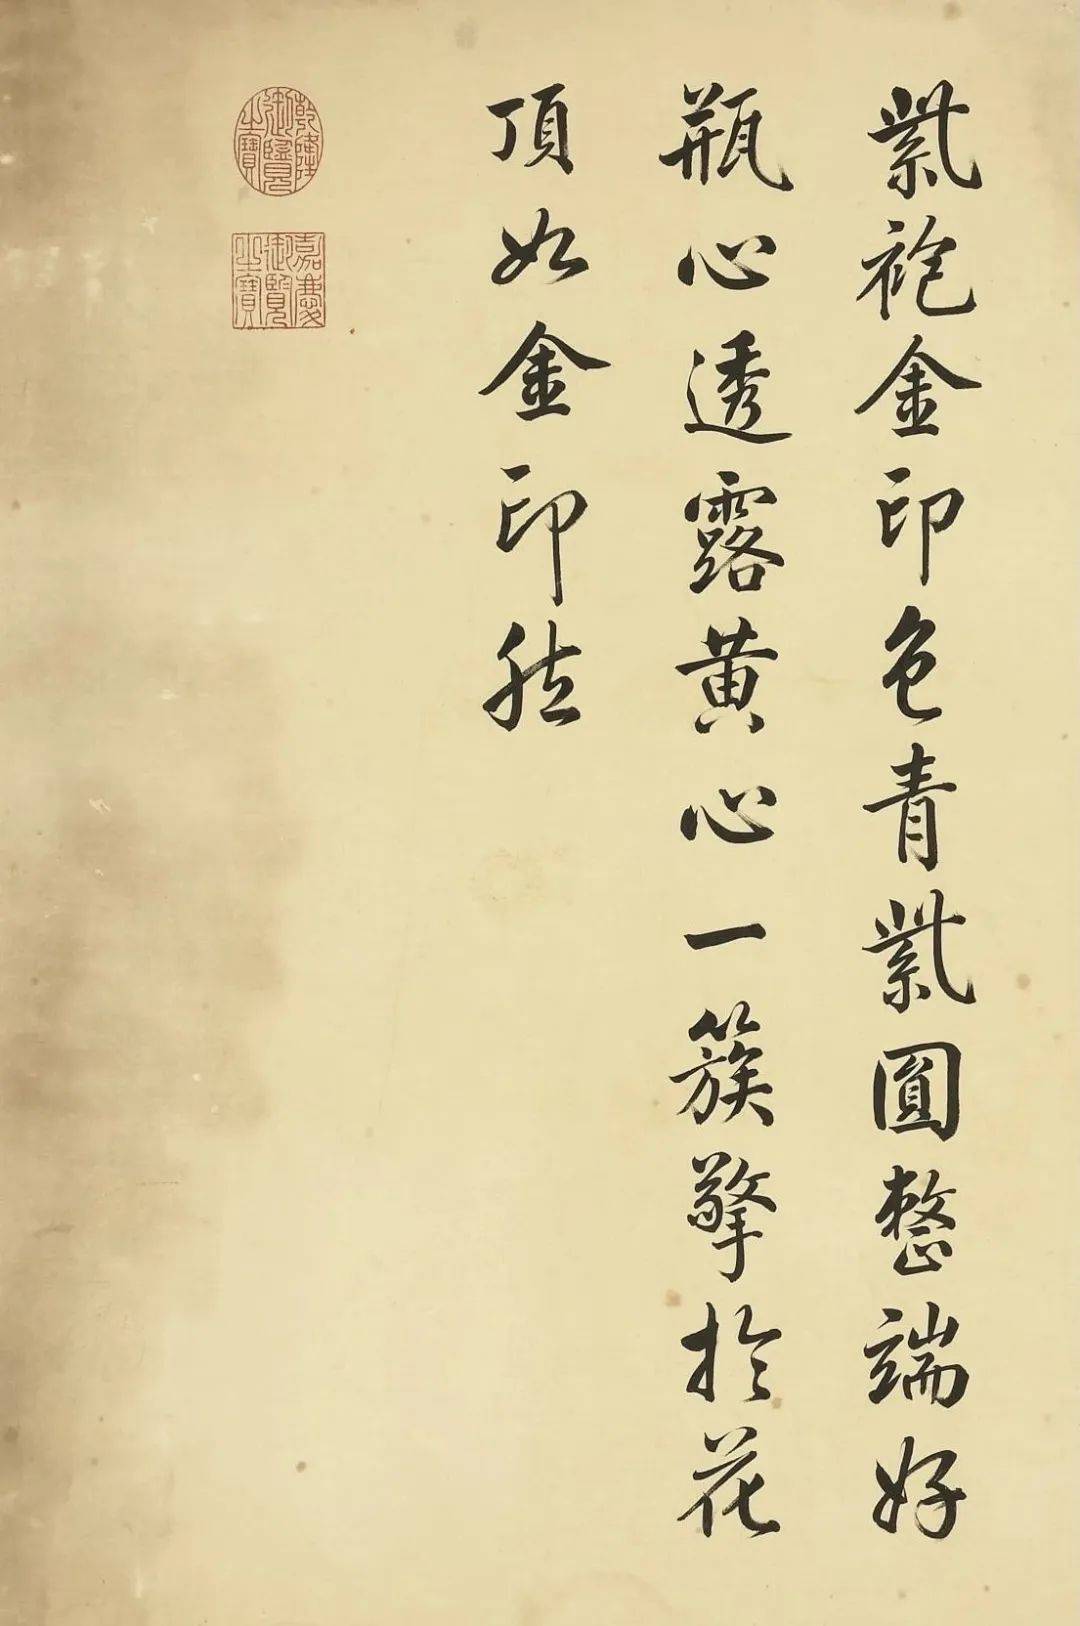 紫袍金印色青紫圓整端好
瓶心透露黄心一簇擎於花
頂如金印然
乾隆御覽之寶
嘉慶御覽之寶